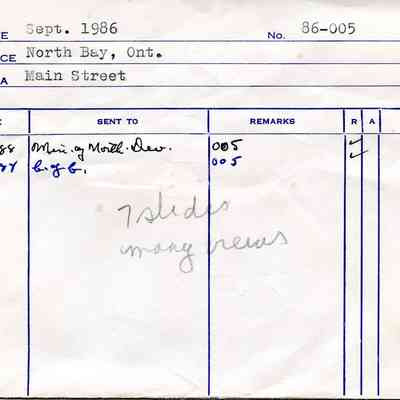 E Sept. 1986 No. 86-005
CE North Bay, Ont.
A Main Street
SENT TO REMARKS R A
88 Min. of North. Dev. 005 ✓
005 ✓
7 slides
many views